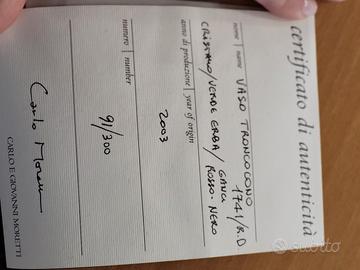 certificato di autenticità
nome | name VASO TRONCOCONO
1741/R.D
CRISTALLO/VERDE ERBA/GANCI
ROSSO-NERO
anno di produzione | year of origin
2003
numero | number
91/300
Carlo Moretti
CARLO E GIOVANNI MORETTI
subito